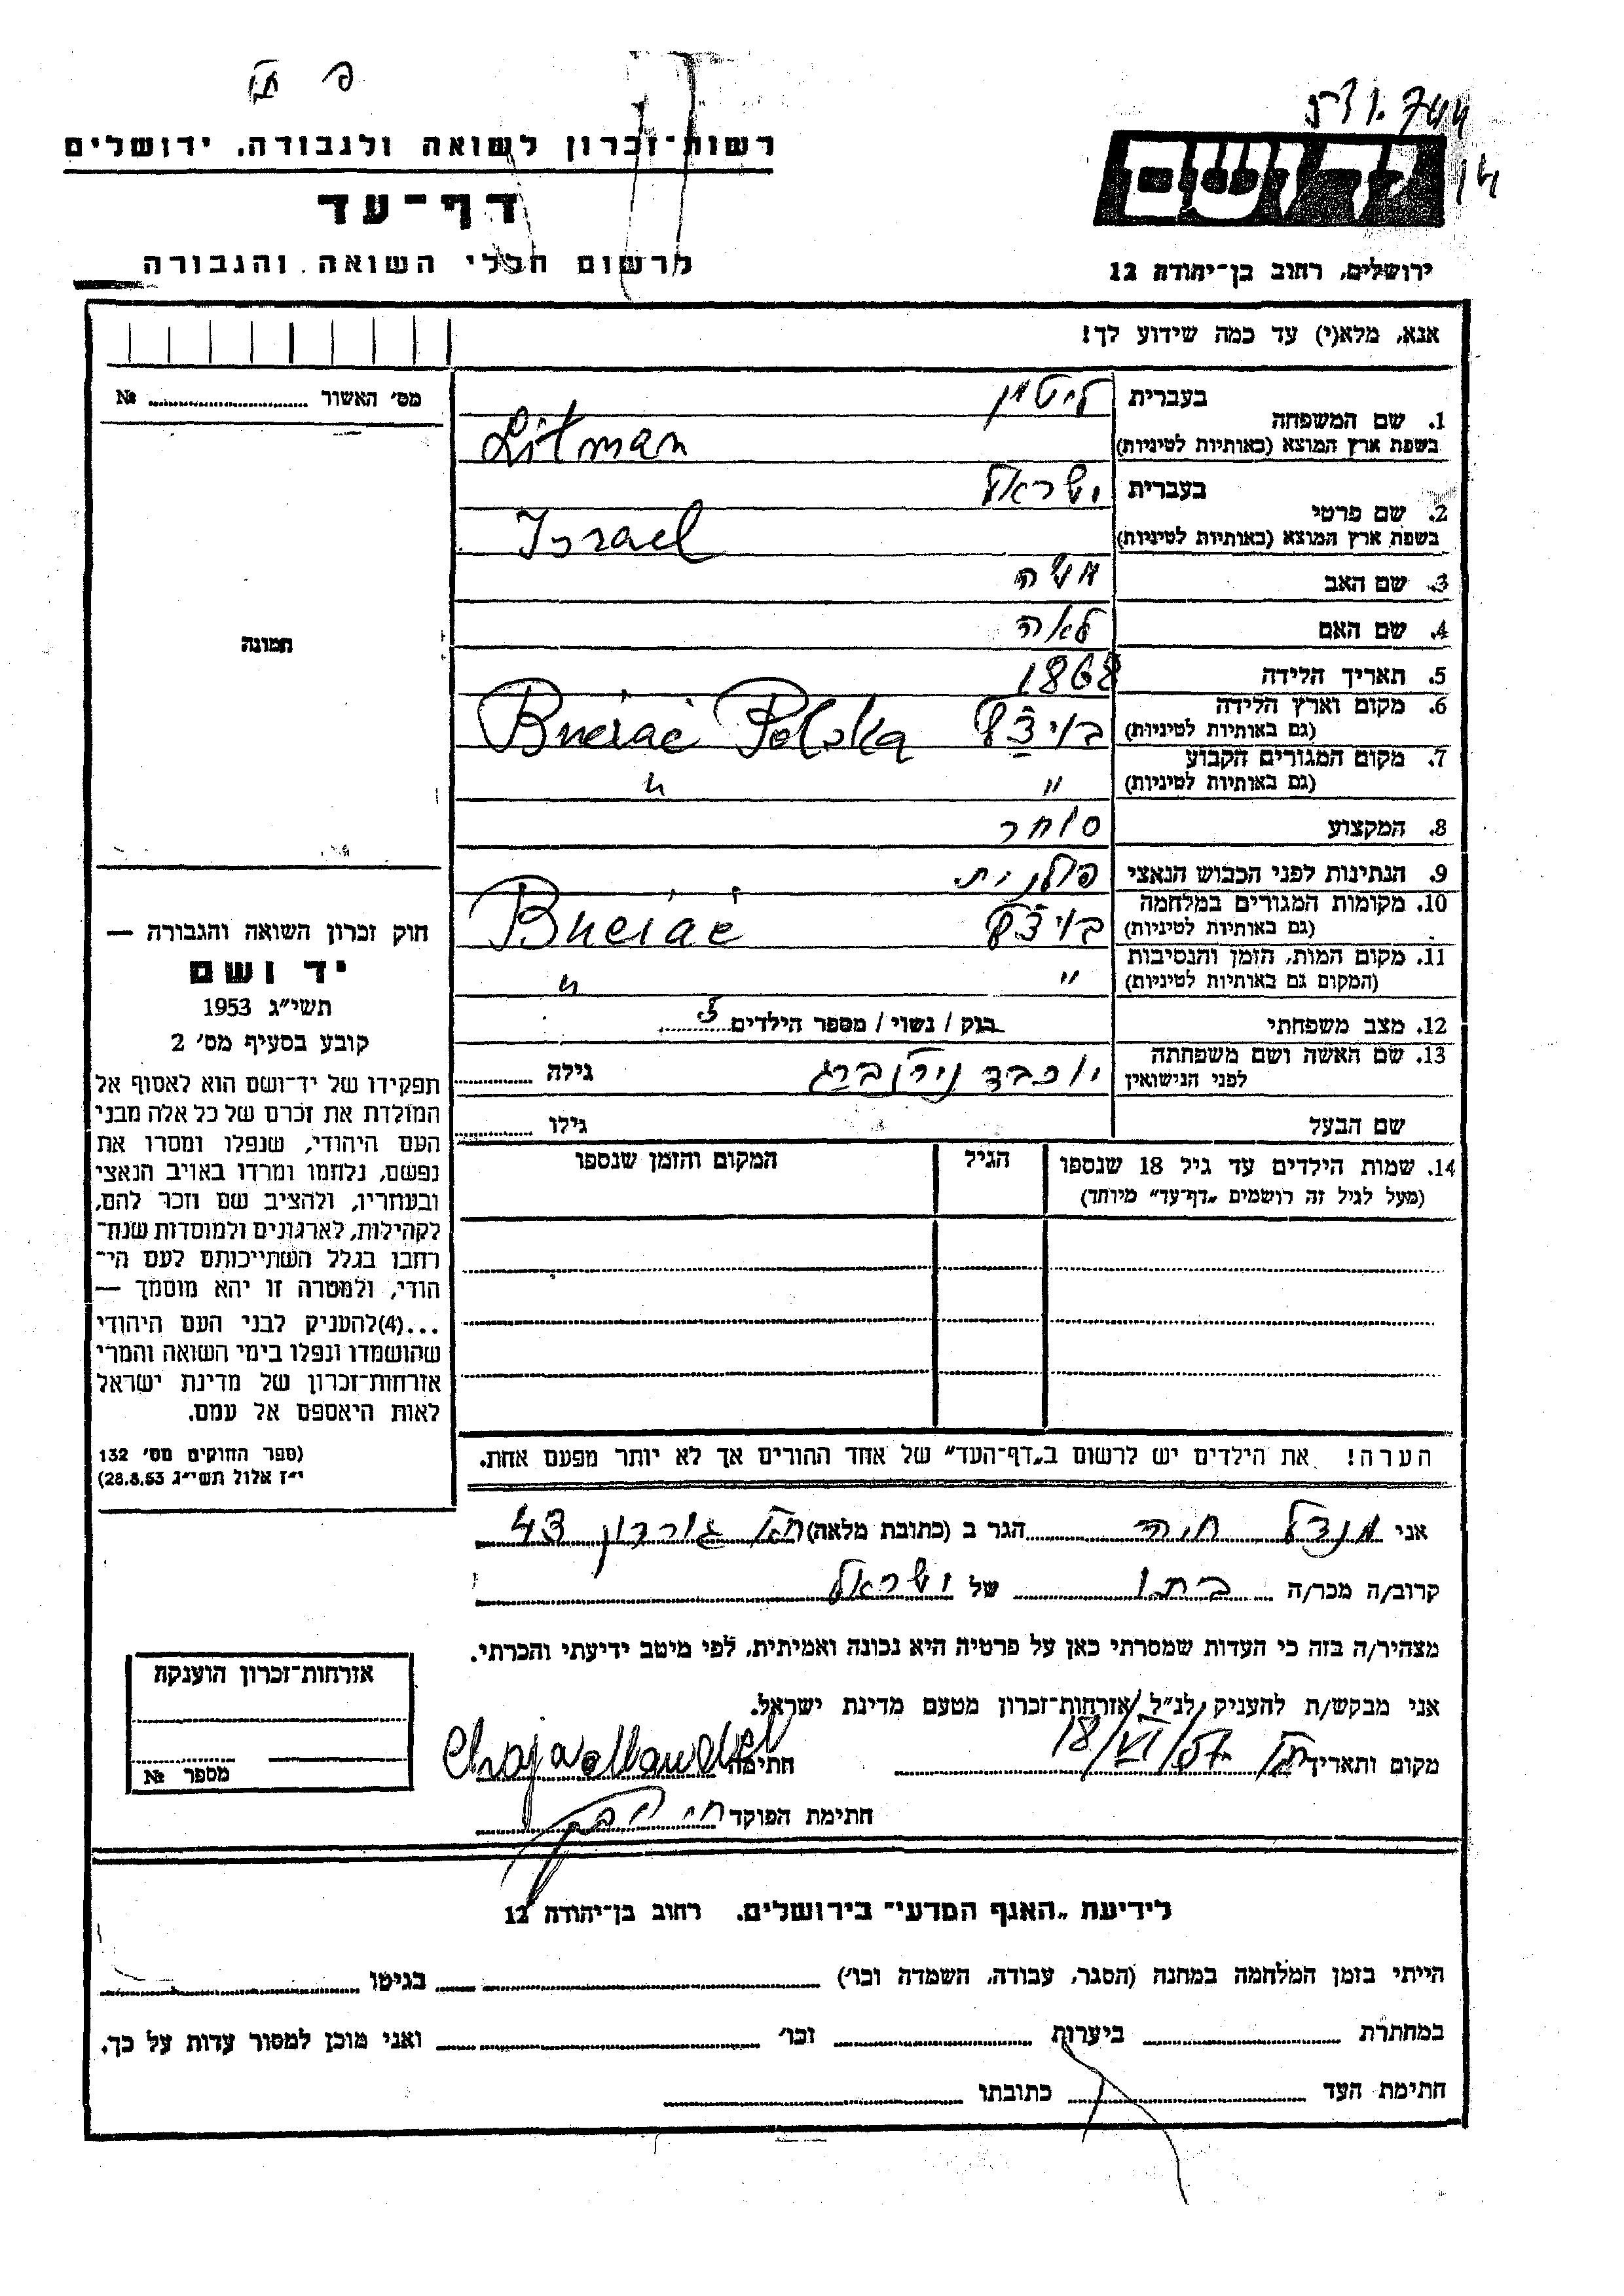 פ תא
531.744
רשות־זכרון לשואה ולגבורה, ירושלים
יד ושם
14
דף־עד
לרשום חללי השואה והגבורה
ירושלים, רחוב בן־יהודה 12
אנא, מלא(י) עד כמה שידוע לך!
מס׳ האשור № 
1. שם המשפחה
בעברית ליטמן
בשפת ארץ המוצא (באותיות לטיניות) Litman
2. שם פרטי
בעברית ישראל
בשפת ארץ המוצא (באותיות לטיניות) Israel
3. שם האב משה
4. שם האם לאה
5. תאריך הלידה 1868
6. מקום וארץ הלידה
(גם באותיות לטיניות) Polska
7. מקום המגורים הקבוע
(גם באותיות לטיניות) " "
8. המקצוע סוחר
9. הנתינות לפני הכבוש הנאצי פולנית
10. מקומות המגורים במלחמה
(גם באותיות לטיניות)
11. מקום המות, הזמן והנסיבות
(המקום גם באותיות לטיניות) " "
12. מצב משפחתי רווק / נשוי / מספר הילדים 5
13. שם האשה ושם משפחתה
לפני הנישואין יוכבד נירנברג גילה
שם הבעל גילו
14. שמות הילדים עד גיל 18 שנספו
(מעל לגיל זה רושמים „דף־עד" מיוחד)
הגיל
המקום והזמן שנספו
תמונה
חוק זכרון השואה והגבורה —
יד ושם
תשי״ג 1953
קובע בסעיף מס׳ 2
תפקידו של יד־ושם הוא לאסוף אל
המולדת את זכרם של כל אלה מבני
העם היהודי, שנפלו ומסרו את
נפשם, נלחמו ומרדו באויב הנאצי
ובעוזריו, ולהציב שם וזכר להם,
לקהילות, לארגונים ולמוסדות שנח־
רבו בגלל השתייכותם לעם הי־
הודי, ולמטרה זו יהא מוסמך —
...(4)להעניק לבני העם היהודי
שהושמדו ונפלו בימי השואה והמרי
אזרחות־זכרון של מדינת ישראל
לאות היאספם אל עמם.
(ספר החוקים מס׳ 132
י״ז אלול תשי״ג 28.8.53)
הערה! את הילדים יש לרשום ב„דף־העד" של אחד ההורים אך לא יותר מפעם אחת.
אני מנדל חיה הגר ב (כתובת מלאה) תא גורדון 43
קרוב/ה מכר/ה בתו של ישראל
מצהיר/ה בזה כי העדות שמסרתי כאן על פרטיה היא נכונה ואמיתית, לפי מיטב ידיעתי והכרתי.
אני מבקש/ת להעניק לנ״ל אזרחות־זכרון מטעם מדינת ישראל.
מקום ותאריך תא 18/VI/57 חתימה Chaja Mandel
חתימת הפוקד
אזרחות־זכרון הוענקה
מספר №
לידיעת „האגף המדעי" בירושלים. רחוב בן־יהודה 12
הייתי בזמן המלחמה במחנה (הסגר, עבודה, השמדה וכו׳) בגיטו
במחתרת ביערות וכו׳ ואני מוכן למסור עדות על כך.
חתימת העד כתובתו